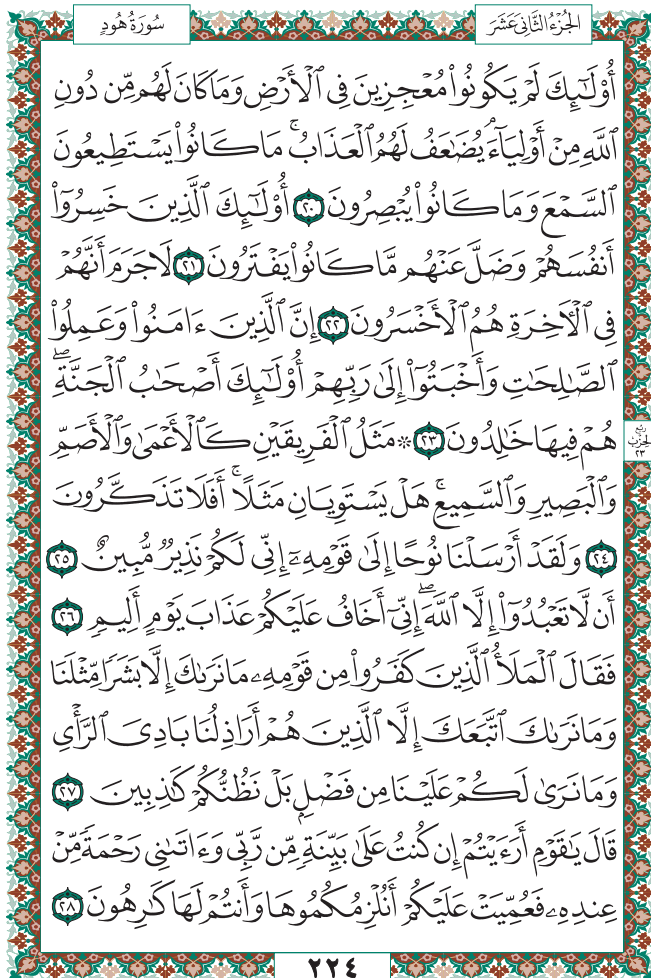 الجُزْءُ الثَّانِي عَشَرَ
سُورَةُ هُودٍ
أُوْلَٰٓئِكَ لَمۡ يَكُونُواْ مُعۡجِزِينَ فِي ٱلۡأَرۡضِ وَمَا كَانَ لَهُم مِّن دُونِ
ٱللَّهِ مِنۡ أَوۡلِيَآءَۘ يُضَٰعَفُ لَهُمُ ٱلۡعَذَابُۚ مَا كَانُواْ يَسۡتَطِيعُونَ
ٱلسَّمۡعَ وَمَا كَانُواْ يُبۡصِرُونَ ٢٠ أُوْلَٰٓئِكَ ٱلَّذِينَ خَسِرُوٓاْ
أَنفُسَهُمۡ وَضَلَّ عَنۡهُم مَّا كَانُواْ يَفۡتَرُونَ ٢١ لَا جَرَمَ أَنَّهُمۡ
فِي ٱلۡأٓخِرَةِ هُمُ ٱلۡأَخۡسَرُونَ ٢٢ إِنَّ ٱلَّذِينَ ءَامَنُواْ وَعَمِلُواْ
ٱلصَّٰلِحَٰتِ وَأَخۡبَتُوٓاْ إِلَىٰ رَبِّهِمۡ أُوْلَٰٓئِكَ أَصۡحَٰبُ ٱلۡجَنَّةِۖ
هُمۡ فِيهَا خَٰلِدُونَ ٢٣ ۞ مَثَلُ ٱلۡفَرِيقَيۡنِ كَٱلۡأَعۡمَىٰ وَٱلۡأَصَمِّ
رُبْعُ
الحِزْبِ
٢٣
وَٱلۡبَصِيرِ وَٱلسَّمِيعِۚ هَلۡ يَسۡتَوِيَانِ مَثَلًاۚ أَفَلَا تَذَكَّرُونَ
٢٤ وَلَقَدۡ أَرۡسَلۡنَا نُوحًا إِلَىٰ قَوۡمِهِۦٓ إِنِّي لَكُمۡ نَذِيرٞ مُّبِينٌ ٢٥
أَن لَّا تَعۡبُدُوٓاْ إِلَّا ٱللَّهَۖ إِنِّيٓ أَخَافُ عَلَيۡكُمۡ عَذَابَ يَوۡمٍ أَلِيمٖ ٢٦
فَقَالَ ٱلۡمَلَأُ ٱلَّذِينَ كَفَرُواْ مِن قَوۡمِهِۦ مَا نَرَىٰكَ إِلَّا بَشَرٗا مِّثۡلَنَا
وَمَا نَرَىٰكَ ٱتَّبَعَكَ إِلَّا ٱلَّذِينَ هُمۡ أَرَاذِلُنَا بَادِيَ ٱلرَّأۡيِ
وَمَا نَرَىٰ لَكُمۡ عَلَيۡنَا مِن فَضۡلِۭ بَلۡ نَظُنُّكُمۡ كَٰذِبِينَ ٢٧
قَالَ يَٰقَوۡمِ أَرَءَيۡتُمۡ إِن كُنتُ عَلَىٰ بَيِّنَةٖ مِّن رَّبِّي وَءَاتَىٰنِي رَحۡمَةٗ مِّنۡ
عِندِهِۦ فَعُمِّيَتۡ عَلَيۡكُمۡ أَنُلۡزِمُكُمُوهَا وَأَنتُمۡ لَهَا كَٰرِهُونَ ٢٨
٢٢٤